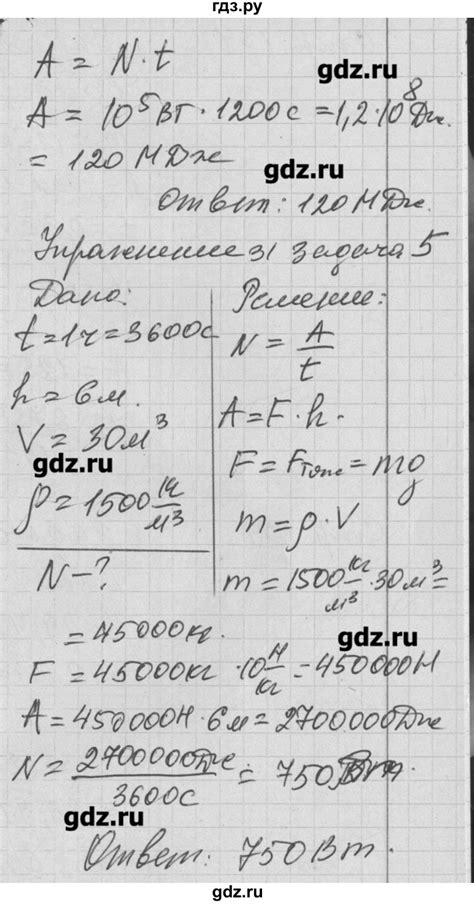 гдз.ру
A = N·t
gdz.ru
A = 10⁵ Вт · 1200с = 1,2·10⁸ Дж.
= 120 МДж
gdz.ru
Ответ: 120 МДж.
Упражнение 31 задача 5
Дано:
t = 1ч = 3600с
h = 6м.
V = 30м³
gdz.ru
ρ = 1500 кг/м³
N - ?
Решение:
N = A/t
A = F·h.
F = Fтяж = mg
m = ρ·V
m = 1500 кг/м³ · 30м³ =
= 45000кг.
gdz.ru
F = 45000кг · 10 Н/кг = 450000Н
A = 450000Н · 6м = 2700000Дж
N = 2700000Дж/3600с = 750Вт
gdz.ru
Ответ: 750Вт.
gdz.ru